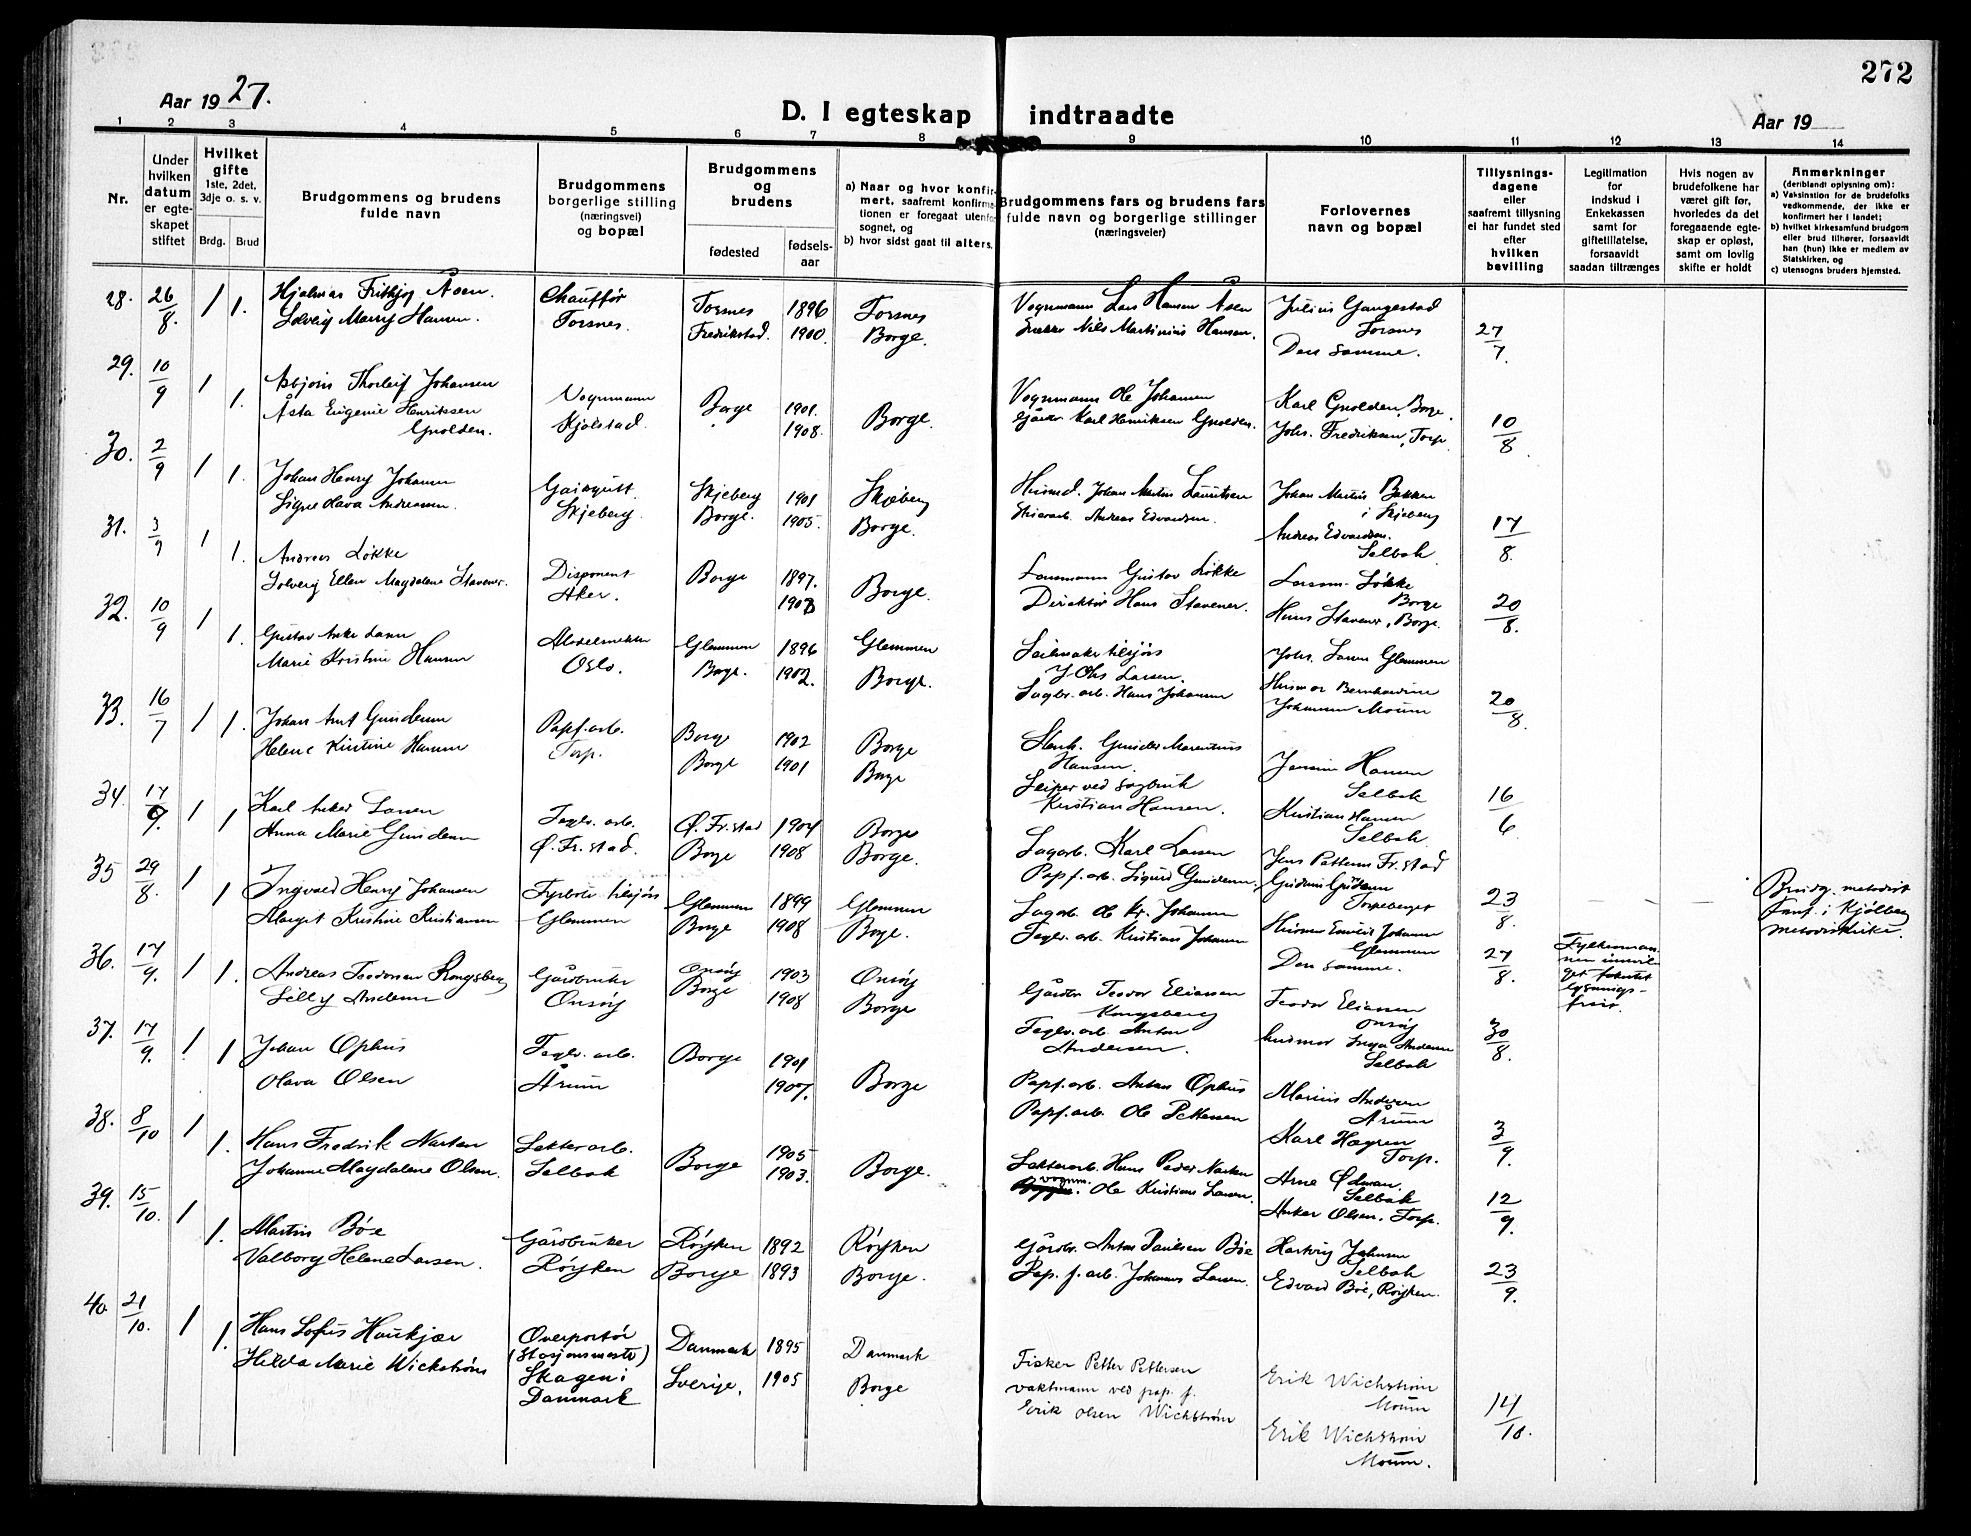 272
Aar 1927.
D. I egteskap indtraadte
Aar 19
1 2 3 4 5 6 7 8 9 10 11 12 13 14
Nr.
Under hvilken datum er egteskapet stiftet
Hvilket gifte 1ste, 2det, 3dje o. s. v.
Brdg. Brud
Brudgommens og brudens fulde navn
Brudgommens borgerlige stilling (næringsvei) og bopæl
Brudgommens og brudens
fødested
fødsels-aar
a) Naar og hvor konfirmert, saafremt konfirmationen er foregaat utenfor sognet, og
b) hvor sidst gaat til alters.
Brudgommens fars og brudens fars fulde navn og borgerlige stillinger (næringsveier)
Forlovernes navn og bopæl
Tillysningsdagene eller saafremt tillysning ei har fundet sted efter hvilken bevilling
Legitimation for indskud i Enkekassen samt for giftetillatelse, forsaavidt saadan tiltrænges
Hvis nogen av brudefolkene har været gift før, hvorledes da det foregaaende egteskap er opløst, samt om lovlig skifte er holdt
Anmerkninger (deriblandt oplysning om):
a) Vaksinstion for de brudefolks vedkommende, der ikke er konfirmert her i landet;
b) hvilket kirkesamfund brudgom eller brud tilhører, forsaavidt han (hun) ikke er medlem av Statskirken, og
c) utensogns bruders hjemsted.
28. 26/8. 1 1. Hjalmar Fritjof Åsen. Chauffør Torsnes 1896 Torsnes Vognmann Lars Hansen Åsen Julius Gangestad
Solveig Marry Hansen. Torsnes. Fredrikstad. 1900. Borge. Nils Martinius Hansen. Torsnes 27/7.
Den samme.
29. 10/9 1 1. Asbjørn Thorleif Johansen Vognmann Borge 1901. Borge. Vognmann Ole Johansen Karl Gnolden, Borge.
Åsta Eugenie Henriksen Kjølstad. 1908. Gårdbr. Karl Henriksen Gnolden. Johs. Fredriksen, Torp. 10/8
Gnolden.
30. 2/9 1 1. Johan Henry Johansen Skjeberg 1901 Skjeberg Husmd. Johan Martin Lauritsen Johan Martin Bakken
Signe Hava Andreassen. Skjeberg. Borge. 1905. Borge. Andreas Edvardsen. i Skjeberg 17/8.
Andreas Edvardsen.
Selbak
31. 3/9 1 1. Andreas Løkke Disponent Borge 1897. Borge. Lensmann Gustav Løkke Lensm. Løkke
Solveig Ellen Magdalene Stavener. Aker. 1903 Direktør Hans Stavener. Borge 20/8.
Hans Stavener, Borge.
32. 10/9 1 1. Gustav Anker Larsen Glemmen 1896 Glemmen Seilmaker tilsjøs Johs. Larsen Glemmen
Marie Kristine Hansen Oslo. Borge. 1902. Borge. J. Chr. Larsen. Husmor Bernhardine
Sagbr. arb. Hans Johansen Johansen Moum 20/8.
33. 16/7 1 1. Johan Arnt Gundersen Papf. arb. Borge 1902 Borge Gunder Marentius
Helene Kristine Hansen Torp. Borge 1901 Borge Hansen. Jensine Hansen
Sliper ved sagbruk Selbak 16/6
Kristian Hansen. Kristian Hansen
Selbak
34. 17/9. 1 1 Karl Anker Larsen Teglv. arb. Ø. Fr.stad 1904 Borge Sagarb. Karl Larsen Jens Pettersen Fr.stad
Anna Marie Gundersen Ø. Fr.stad. Borge 1908 Borge. Papf. arb. Sigurd Gundersen. Torpeberget 23/8.
35 29/8. 1 1 Ingvald Henry Johansen Fyrbøter tilsjøs Glemmen 1899 Glemmen Sagarb. Ole Kr. Johansen Husmor Johansen
Margit Kristine Kristiansen Glemmen Borge 1908 Borge. Teglv. arb. Kristian Johansen Glemmen 27/8.
Den samme.
Fylkesmannen innvilget forkortet lysningsfrist.
Brudg. metodist
i Kjølberg
metodistkirke.
36. 17/9. 1 1. Andreas Teodorsen Kongsberg Gårdbruker Onsøy 1903 Onsøy Gårdbr. Teodor Eliassen Teodor Eliassen
Lilly Andersen Onsøy Borge 1908 Borge Kongsberg Onsøy 30/8.
Teglv. arb. Anton husmor Inga Andersen
Andersen. Selbak
37. 17/9. 1 1 Johan Ophus Teglv. arb. Borge 1901 Borge Papf. arb. Anton Ophus Marius Andersen
Olava Olsen Årum 1907. Papf. arb. Ole Pettersen Årum 3/9.
Karl Hagren
Torp.
38. 8/10 1 1. Hans Fredrik Narten Lekterarb. Borge 1905 Borge. Lekterarb. Hans Peder Narten Arne Ødman.
Johanne Magdalene Olsen. Selbak 1903. vognm. Ole Kristian Larsen. Selbak 12/9.
Anker Olsen, Torp.
39. 15/10. 1 1. Martin Bøe Gårdbruker Røyken 1892 Røyken Gårdbr. Anton Paulsen Bøe Hartvig Johnsen
Valborg Helene Larsen. Røyken Borge 1893 Borge. Pap. f. arb. Johannes Larsen. Selbak 23/9.
Edvard Bøe, Røyken.
40. 21/10. 1 1. Hans Sofus Haukjær Overportør Danmark 1895 Danmark Fisker Petter Pettersen Erik Wichstrøm
Hilda Marie Wickstrøm (Stasjonsmester) Sverige. 1905 Borge vaktmann ved pap. f. Moum 14/10.
Skagen i Erik Olsen Wichstrøm Erik Wichstrøm
Danmark Moum.